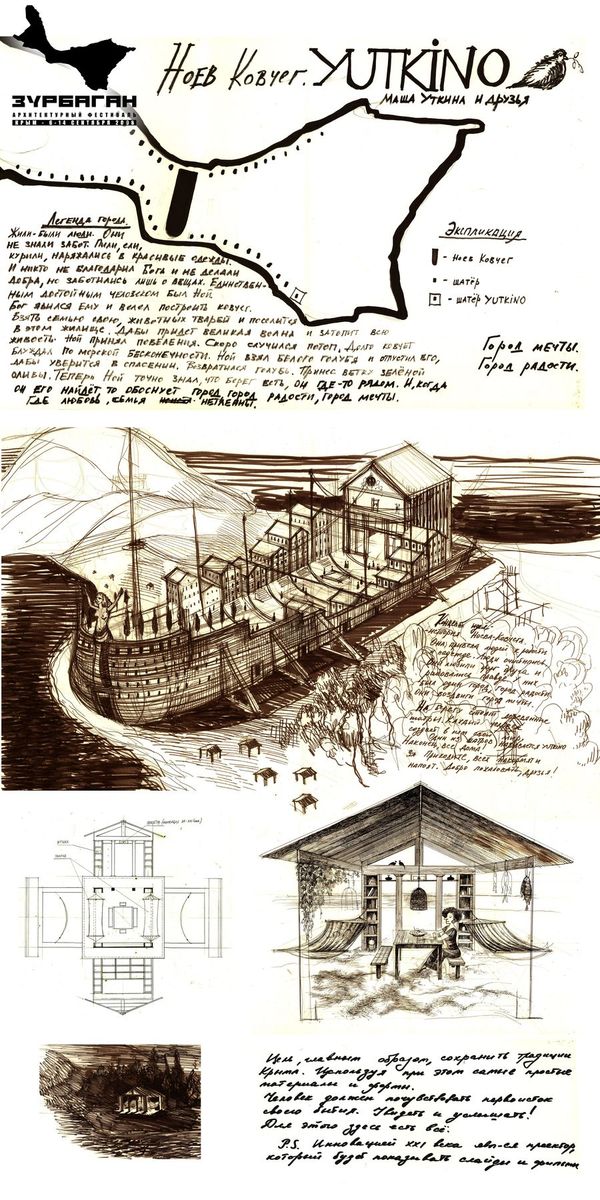 Ноев Ковчег. YUTKINO
Маша Уткина и друзья
ЗУРБАГАН
АРХИТЕКТУРНЫЙ ФЕСТИВАЛЬ
КРЫМ - 6-14 СЕНТЯБРЯ 2008
Легенда города.
Жили-были люди. Они
не знали забот. Пили, ели,
курили, наряжались в красивые одежды.
И никто не благодарил Бога и не делали
добра, но заботились лишь о вещах. Единствен-
ным достойным человеком был Ной.
Бог явился ему и велел построить ковчег.
Взять семью свою, животных тварей и поселится
в этом жилище. Дабы придет великая волна и затопит всю
живость. Ной принял повеления. Скоро случился потоп. Долго ковчег
блуждал по морской бесконечности. Ной взял белого голубя и отпустил его,
дабы уверится в спасении. Возвратился голубь. Принес ветку зелёной
оливы. Теперь Ной точно знал, что берег есть, он где-то рядом. И, когда
он его найдёт, то обоснует город, город радости, город мечты.
Где любовь, семья нетленны.
Экспликация
- Ноев Ковчег
- шатёр
- шатёр YUTKINO
Город мечты.
Город радости.
история Ноева-Ковчега.
люди
друга и
город радости,
они создали город мечты.
На берегу стоят
шатры. Каждый
создает в нем свой
Один из шатров называется Юткино
Наконец, все дома!
Заходите, всех накормят и
напоят. Добро пожаловать, друзья!
Цель, главным образом, сохранить традиции
Крыма. Используя при этом самые простые
материалы и формы.
Человек должен почувствовать первоисток
своего бытия. Увидеть и услышать!
Для этого здесь есть всё.
P.S. Инновацией XXI века явл-ся проектор,
который будет показывать слайды и фильмы